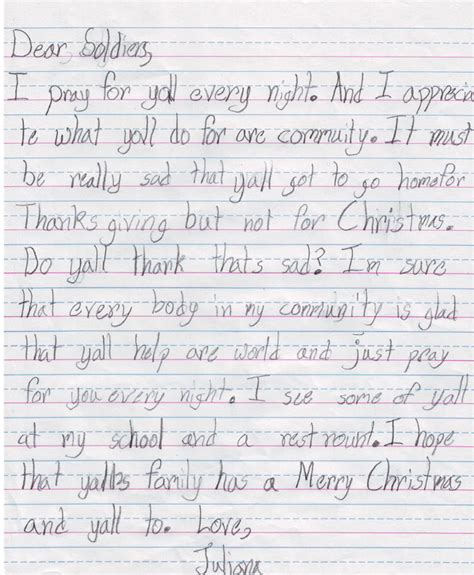 Dear, Soldiers,
I pray for yall every night. And I apprecia
te what yall do for are commuity. It must
be really sad that yall got to go home for
Thanksgiving but not for Christmas.
Do yall thank thats sad? Im sure
that every body in my community is glad
that yall help are world and just pray
for you every night. I see some of yall
at my school and a rest rount. I hope
that yalls family has a Merry Christmas
and yall to. Love,
Juliana